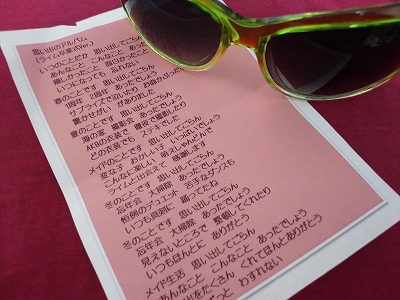 思い出のアルバム
(ライム卒業式Ver.)
いつのことだか 思い出してごらん
あんなこと こんなこと あった
嬉しかったこと 面白かった
いつになっても 忘れない
春のことです 思い出してごらん
1周年 2周年 あったでしょう
サプライズで泣いたり お助かった
驚かせがい がありました
夏のことです 思い出してごらん
海の家 撮影会 あったでしょう
AKBの衣装で 踊るで撮影したり
どの衣装でも ステキでした
メイドのことです 思い出してごらん
変な子 おかしい子 いっぱいでしょう
こんなに楽しい 萌えしゃんどんで
ライムと出会えて 感謝します
冬のことです 思い出してごらん
忘年会 大掃除 あったでしょう
恒例のデュエット 苦手なダンスも
いつも真剣に 踊ってたね
冬のことです 思い出してごらん
忘年会 大掃除 あったでしょう
見えないところで 整頓してくれたり
いつもほんとに ありがとう
メイド生活 思い出してごらん
あんなこと こんなこと あったでしょう
出をたくさん くれてほんとありがとう
っと わすれない